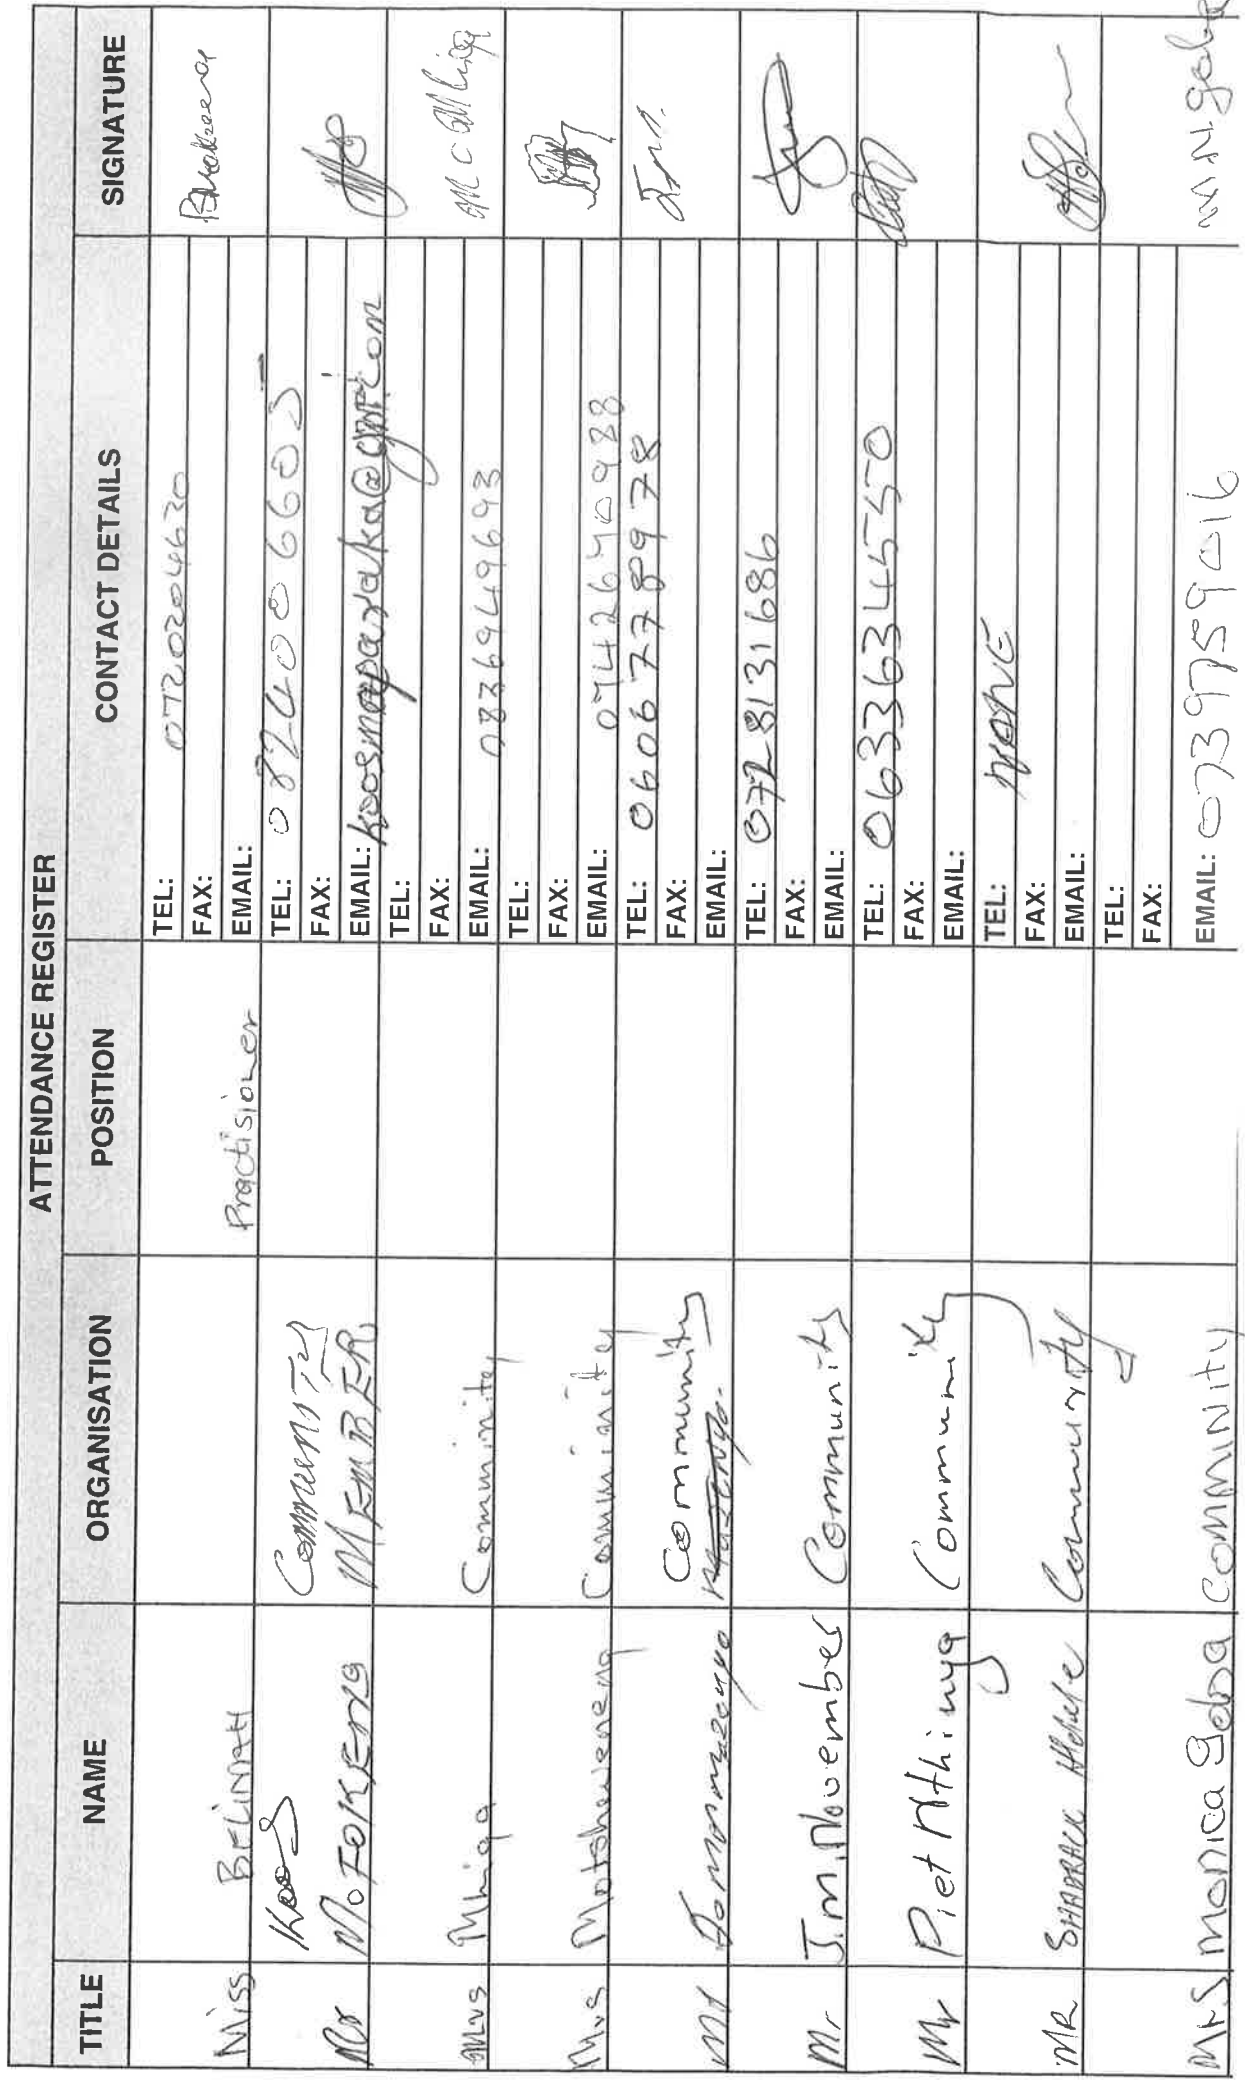 ATTENDANCE REGISTER
TITLE NAME ORGANISATION POSITION CONTACT DETAILS SIGNATURE
Miss BELINAH Practisioner
TEL: 0720204630
FAX:
EMAIL:
Mr Koos MOFOKENG COMMUNITY MEMBER
TEL: 0824006605
FAX:
EMAIL:
Mrs Mhiga Comminity
TEL:
FAX:
EMAIL: 0836949693
Mrs Motshweneng Comminity
TEL:
FAX:
EMAIL: 0742640988
Mr Community
TEL: 0606778978
FAX:
EMAIL:
Mr J.m. November Community
TEL: 0728131686
FAX:
EMAIL:
Mr Piet Nthinya Community
TEL: 0633634550
FAX:
EMAIL:
MR SHADRACK Community
TEL: NONE
FAX:
EMAIL:
Mrs Monica Goba COMMINITY
TEL:
FAX:
EMAIL: 0739759016